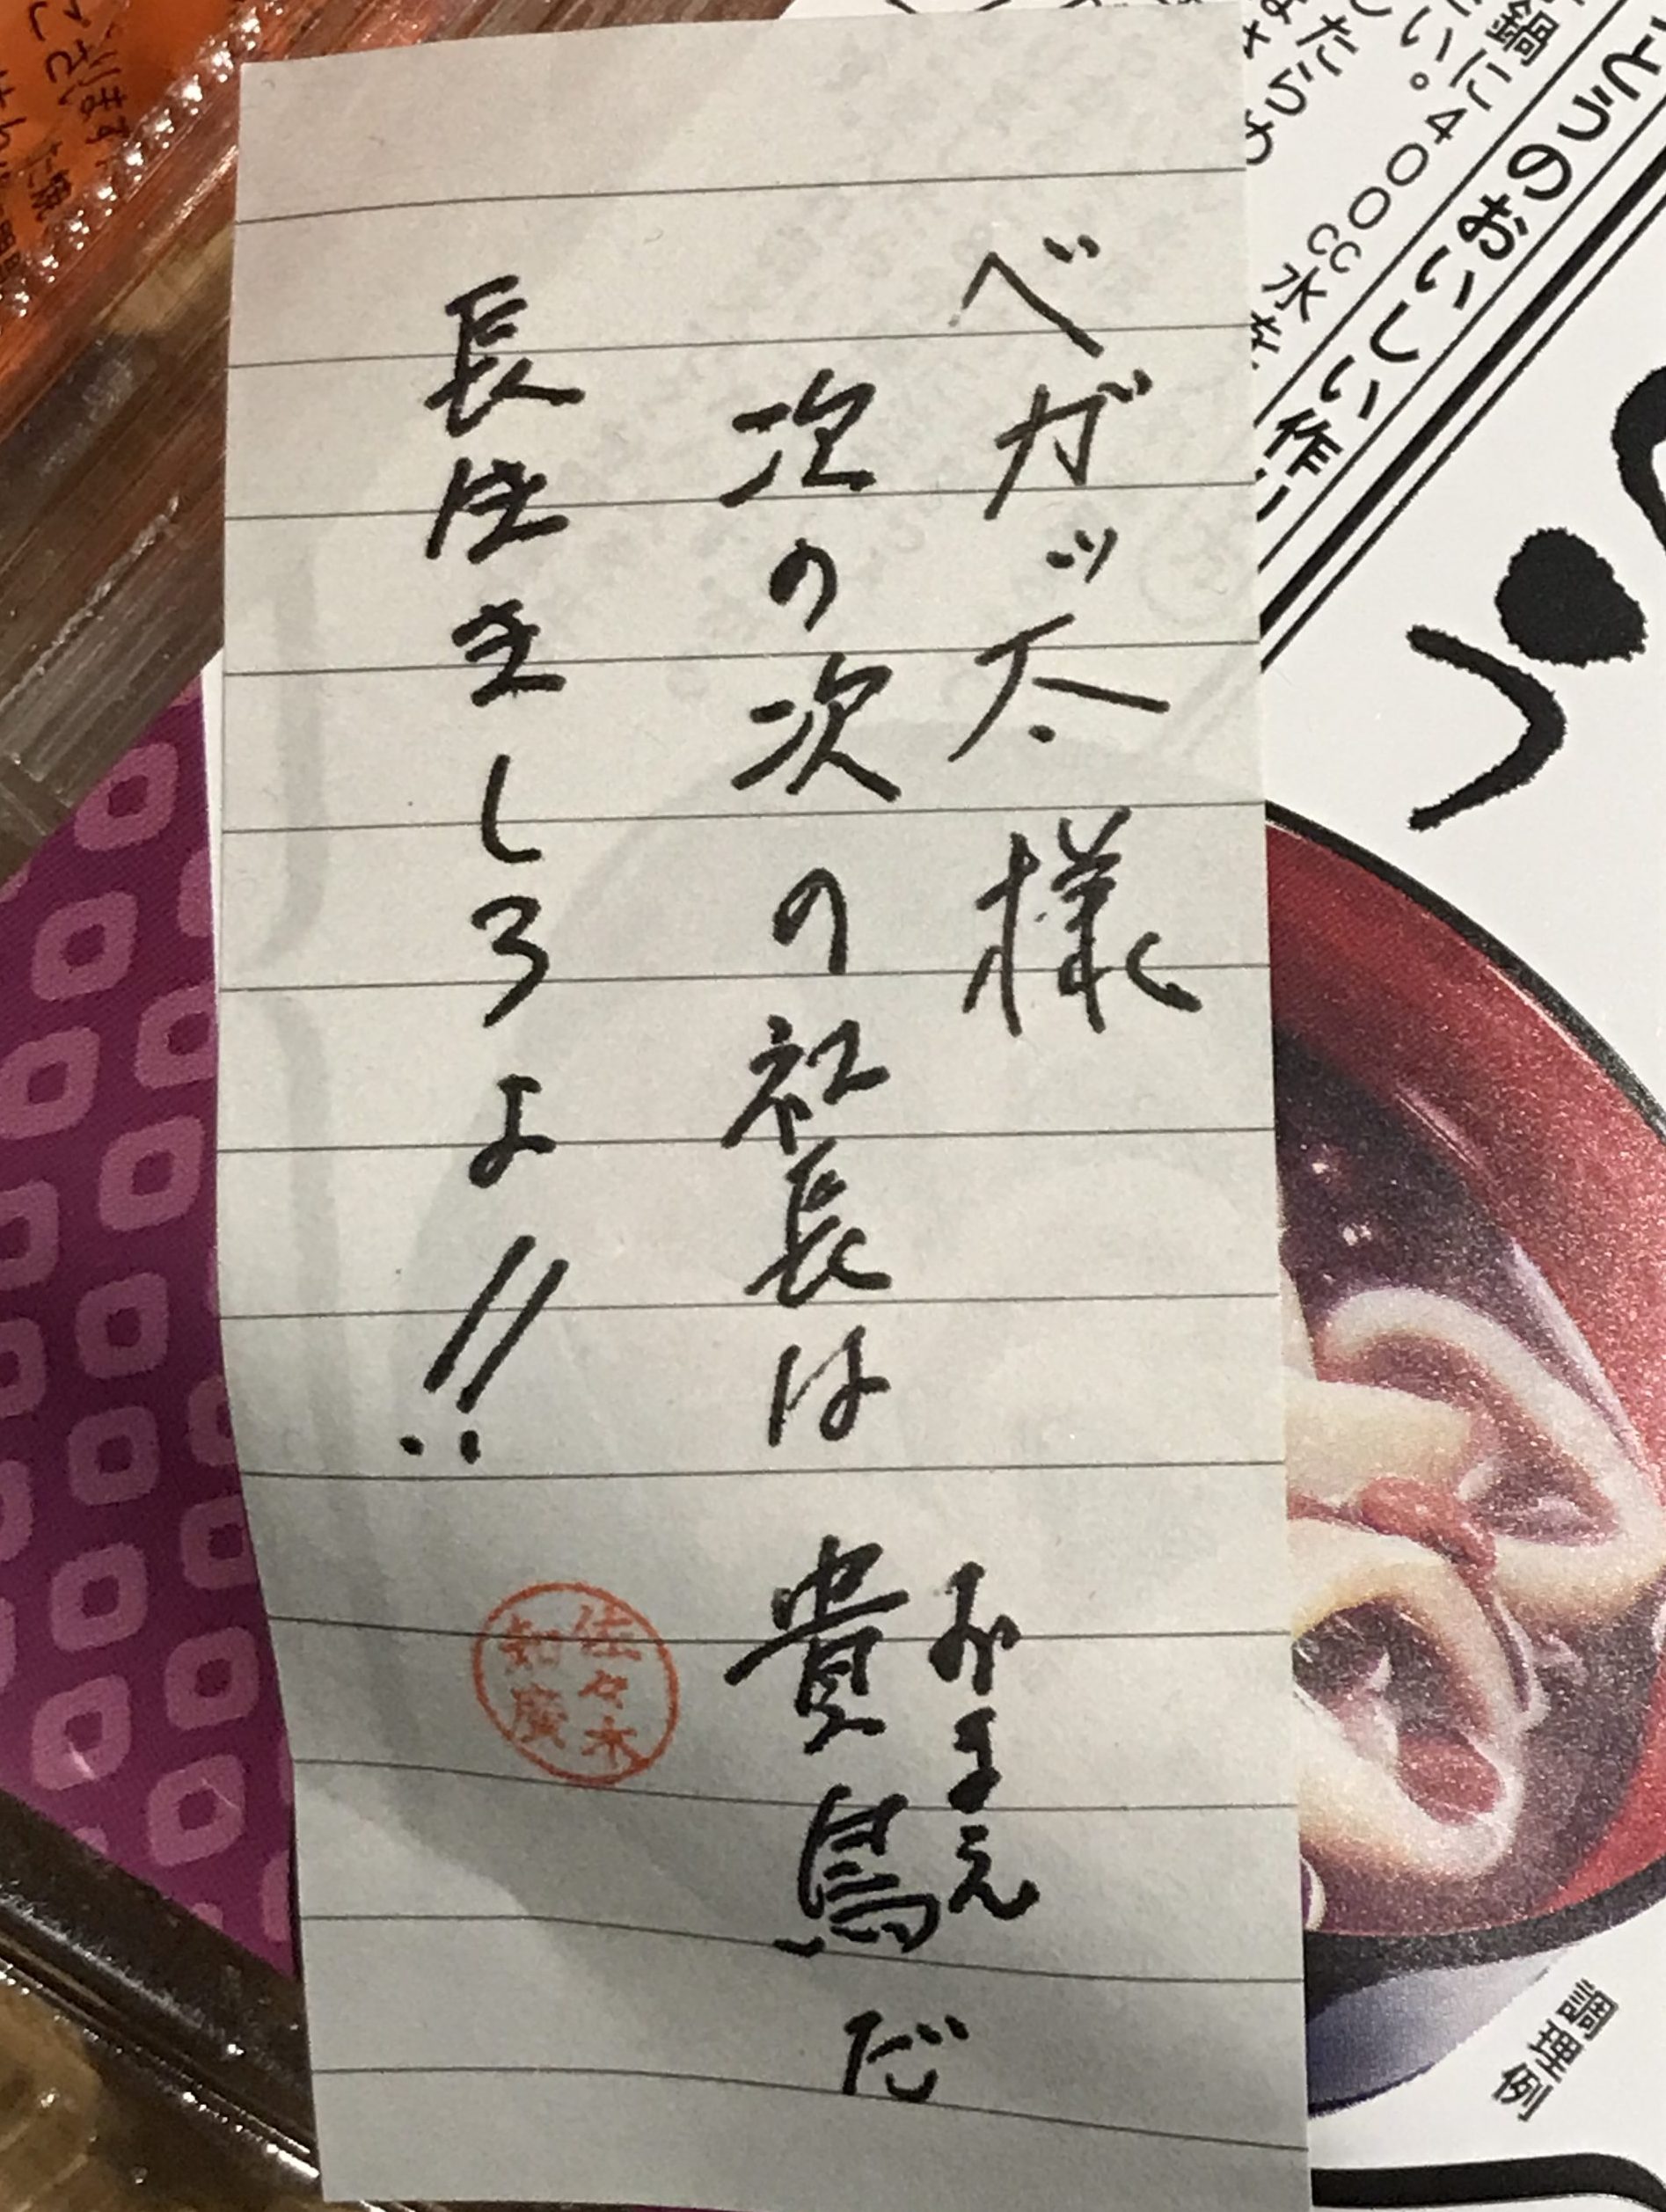 ベガッ太様
次の次の社長は貴鳥だ
おまえ
長生きしろよ!!
佐々木
知廣
とうのおいしい作り
鍋に400cc水を
い。
またら
う
調理例